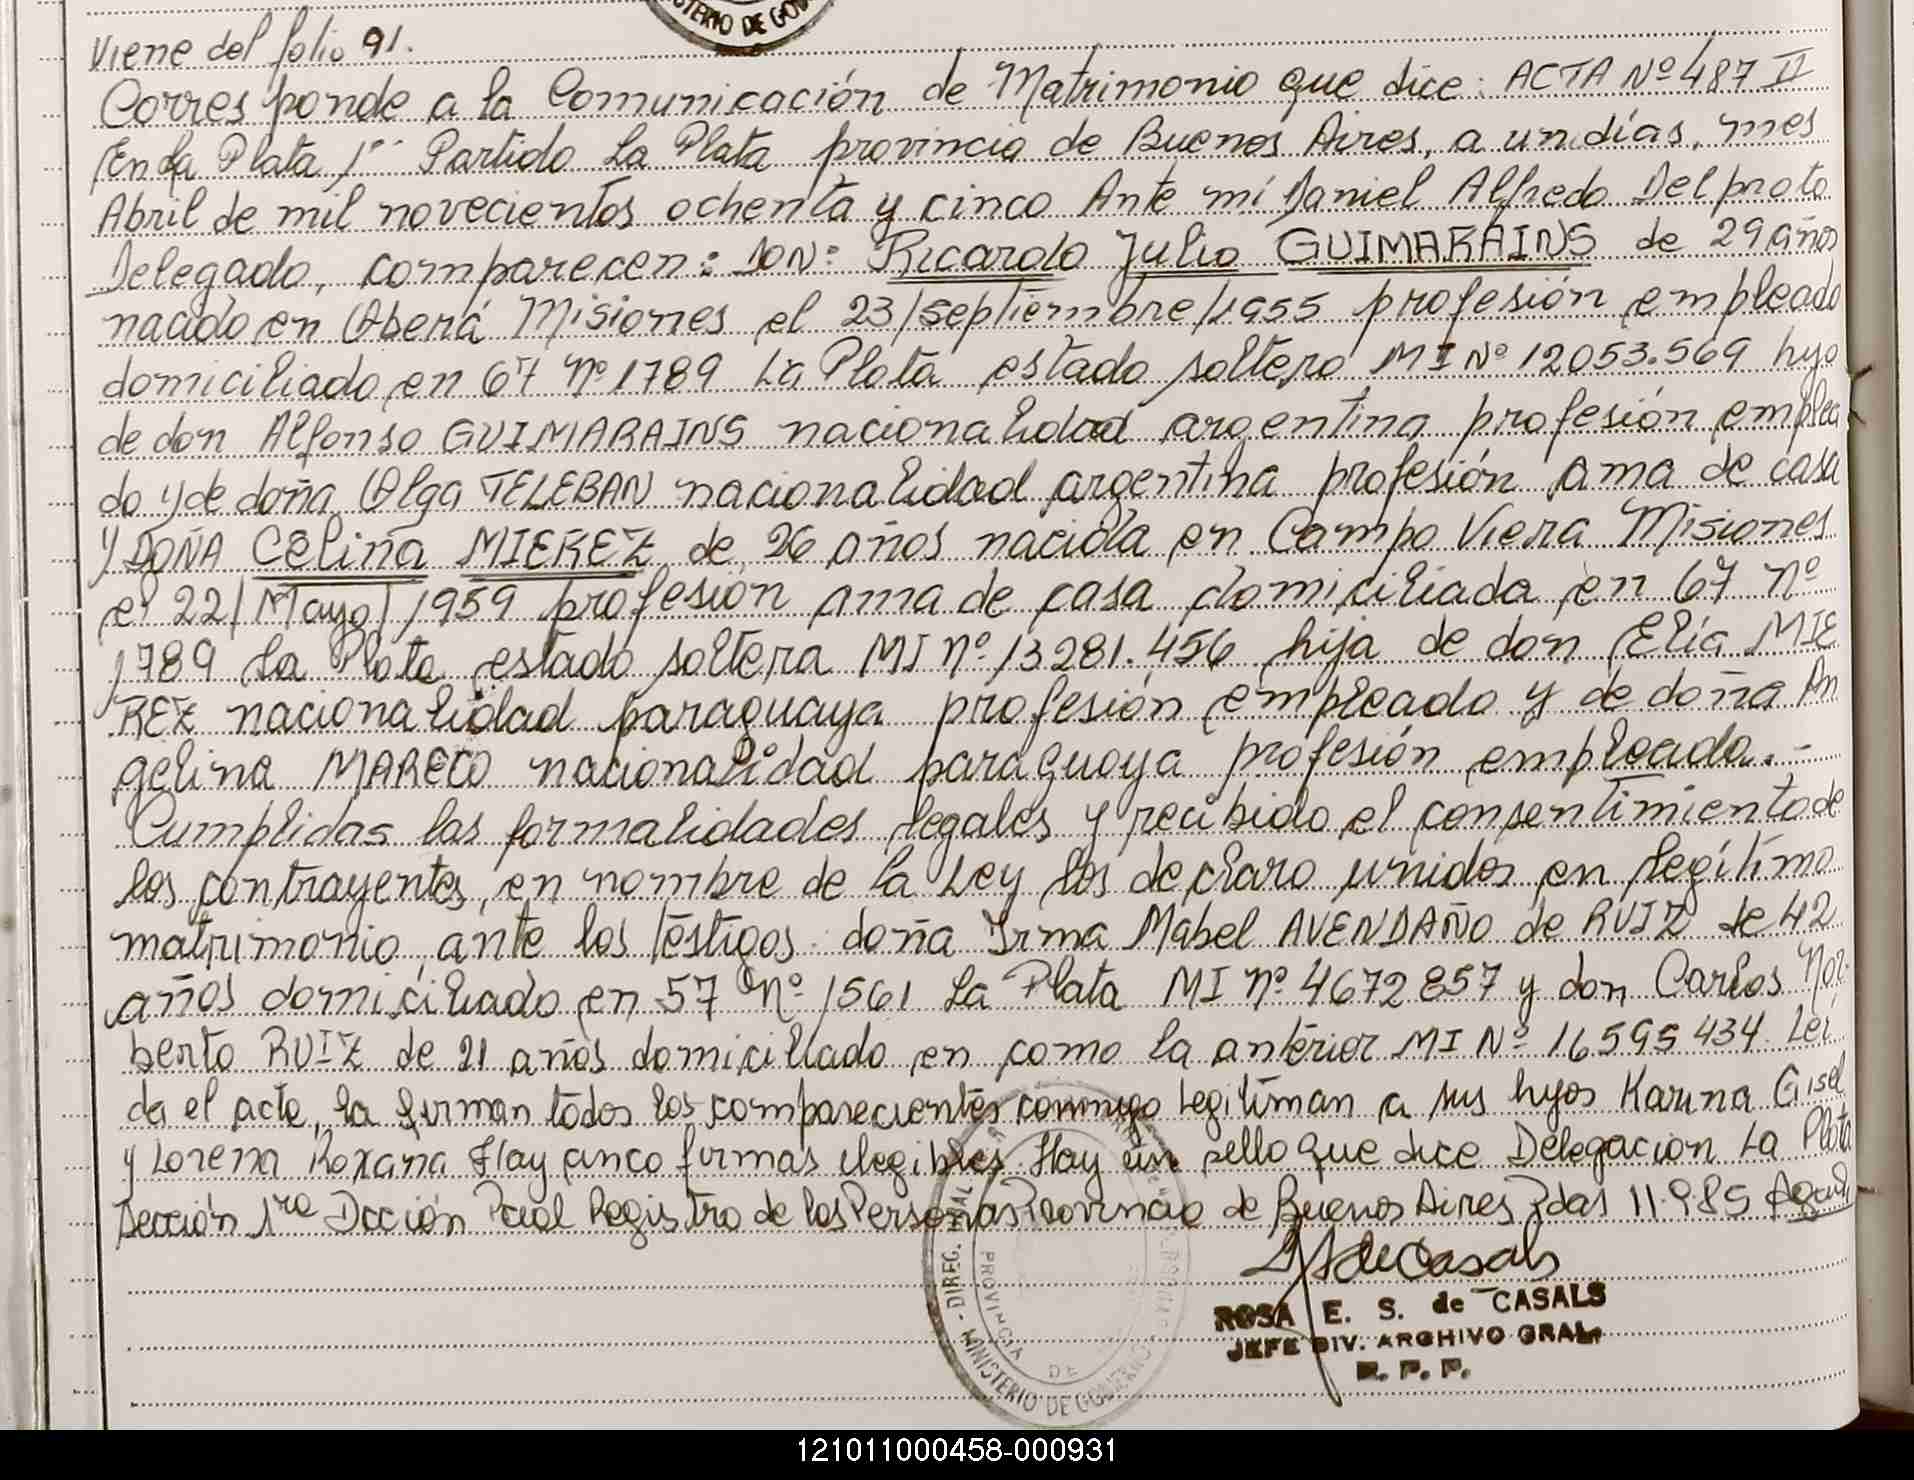 MINISTERIO DE GOV
Viene del folio 91.
Corresponde a la Comunicación de Matrimonio que dice: ACTA Nº 487 II
En La Plata 1ra Partido La Plata provincia de Buenos Aires, a un días, mes
Abril de mil novecientos ochenta y cinco Ante mí Daniel Alfredo Del prato
Delegado, comparecen: DON: Ricardo Julio GUIMARAINS de 29 años
nacido en Oberá Misiones el 23/septiembre/1955 profesión empleado
domiciliado en 67 Nº 1789 La Plata estado soltero MI Nº 12053.569 hijo
de don Alfonso GUIMARAINS nacionalidad argentina profesión emplea
do y de doña Olga TELEBAN nacionalidad argentina profesión ama de casa
Y DOÑA Celina MIEREZ de 26 años nacida en Campo Viera Misiones
el 22/Mayo/1959 profesión ama de casa domiciliada en 67 Nº
1789 La Plata estado soltera MI Nº 13281.456 hija de don Elía MIE
REZ nacionalidad paraguaya profesión empleado y de doña An
gelina MARECO nacionalidad paraguaya profesión empleada.-
Cumplidas las formalidades legales y recibido el consentimiento de
los contrayentes, en nombre de la Ley los declaro unidos en legítimo
matrimonio, ante los testigos: doña Irma Mabel AVENDAÑO de RUIZ de 42
años domiciliado en 57 Nº 1561 La Plata MI Nº 4672857 y don Carlos Nor
berto RUIZ de 21 años domiciliado en como la anterior MI Nº 16595434. Leí
da el acta, la firman todos los comparecientes conmigo Legitiman a sus hijos Karina Gisel
y Lorena Roxana Hay cinco firmas ilegibles. Hay un sello que dice Delegación La Plata
Sección 1ra Dcción Pcial Registro de las Personas Provincia de Buenos Aires 11.985
de Casals
ROSA E. S. de CASALS
JEFE DIV. ARCHIVO GRAL.
R. P. P.
DIREC. GRAL
PROVINCIA DE
MINISTERIO DE GOBIERNO
121011000458-000931